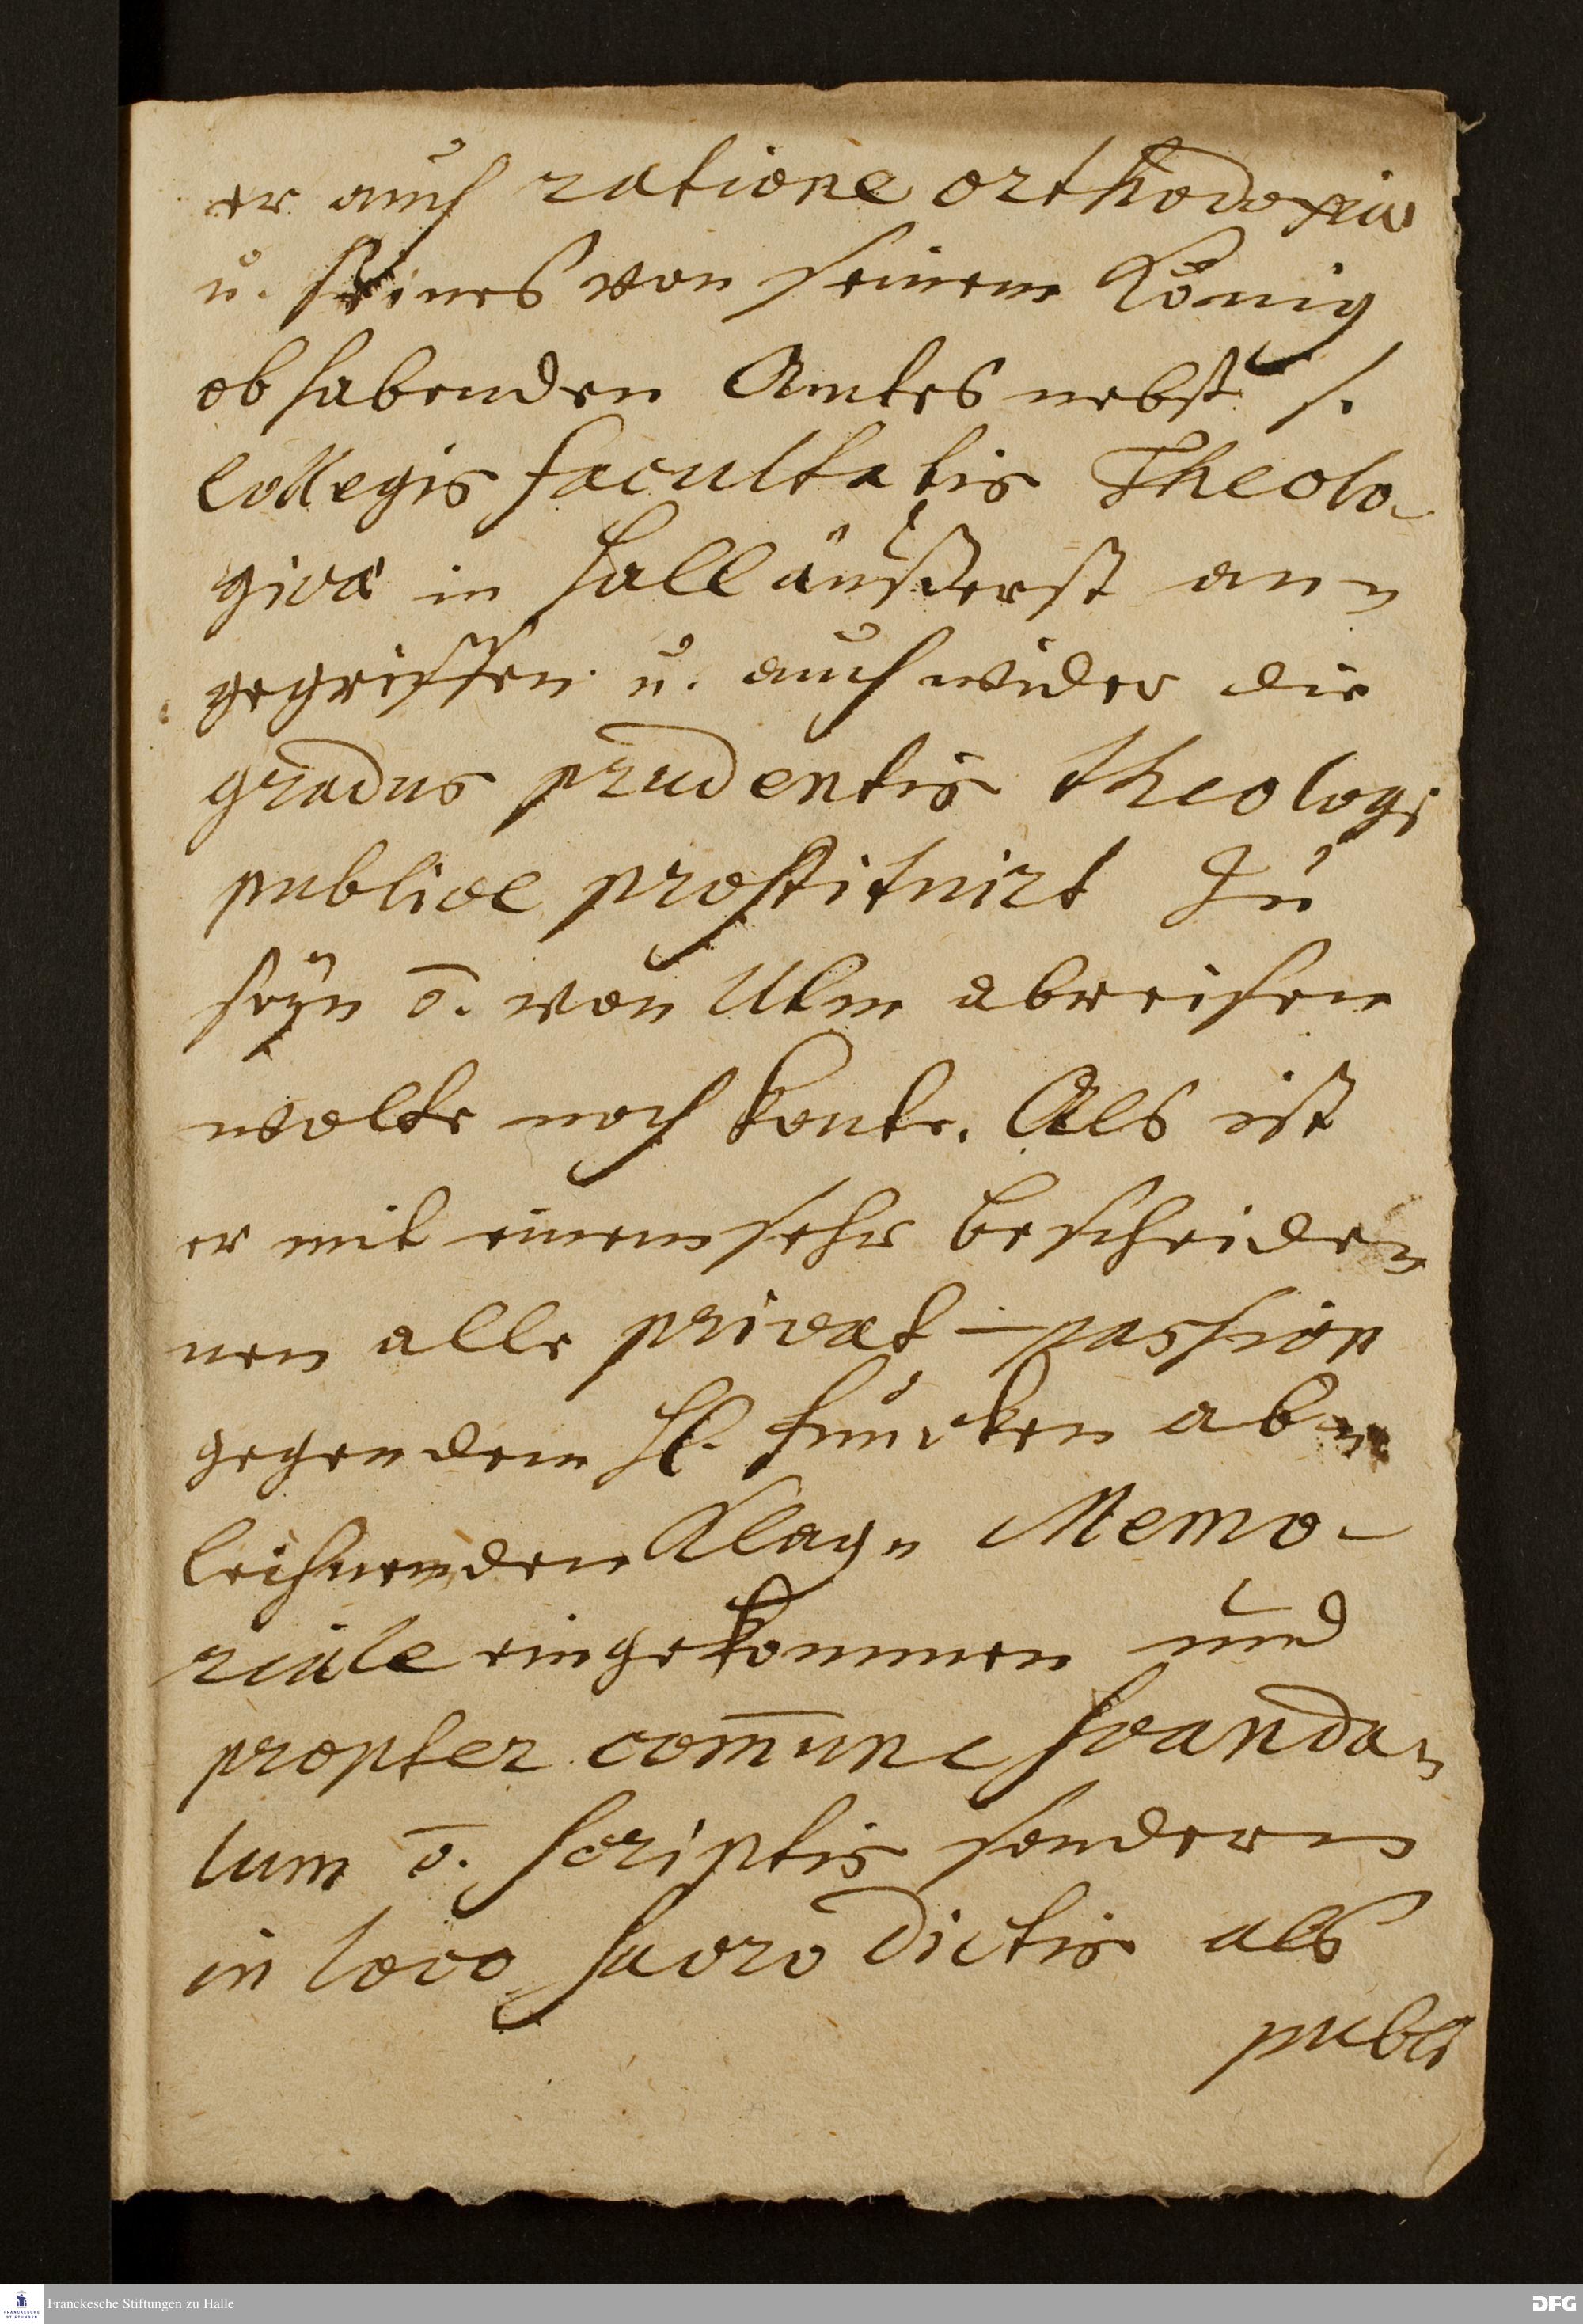 er auch ratione orthodoxiae
u. seines von seinem König
obhabenden Amtes nebst s.
Collegis Facultatis Theolo-
gicae in Hall äußerst an-
gegriffen u. auch wider die
gradus prudentis theologi
publice prostituirt zu
seyn o. von Ulm abreisen
wolte noch konte. Als ist
er mit einem sehr bescheide-
nen alle privat-passion
gegen dem H. Funcken ab-
leihnenden Klag-Memo-
riale eingekommen und
propter com̄une scanda-
lum o. scriptis sondern
in loco sacro dictis als
publi
Franckesche Stiftungen zu Halle
FRANCKESCHE
STIFTUNGEN
DFG